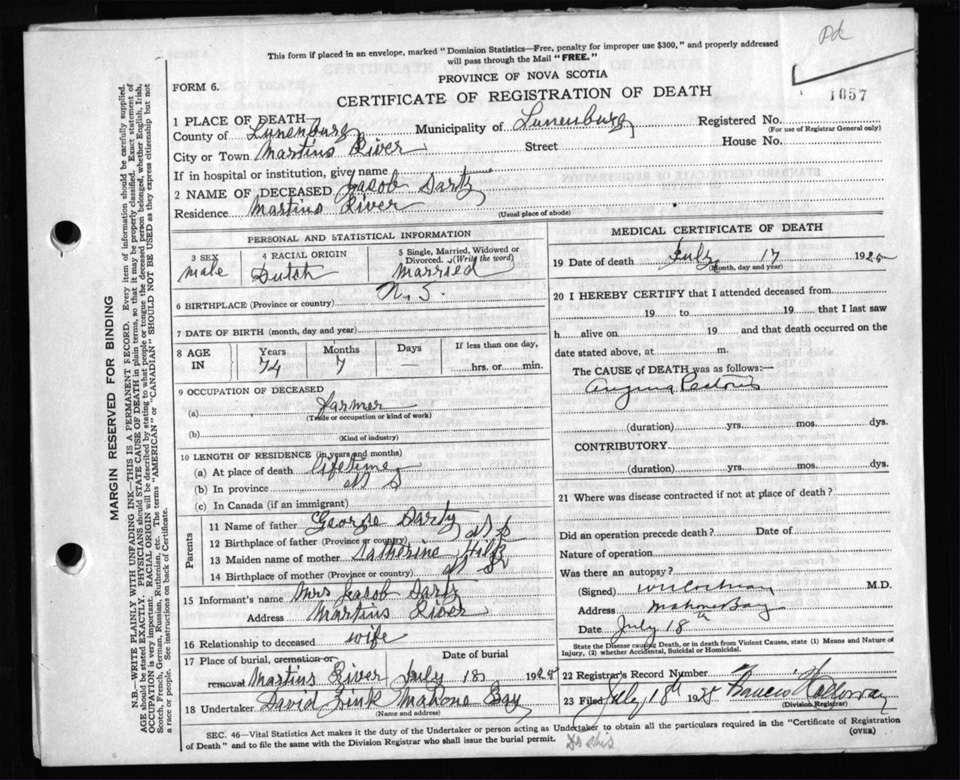 Pd
This form if placed in an envelope, marked "Dominion Statistics—Free, penalty for improper use $300," and properly addressed
will pass through the Mail "FREE."
PROVINCE OF NOVA SCOTIA
FORM 6.
CERTIFICATE OF REGISTRATION OF DEATH
1057
1 PLACE OF DEATH
County of Lunenburg Municipality of Lunenburg Registered No.
(For use of Registrar General only)
City or Town Martins River Street House No.
If in hospital or institution, give name
2 NAME OF DECEASED Jacob Darty
Residence Martins River
(Usual place of abode)
PERSONAL AND STATISTICAL INFORMATION
3 SEX male
4 RACIAL ORIGIN Dutch
5 Single, Married, Widowed or
Divorced. (Write the word)
Married
6 BIRTHPLACE (Province or country) N. S.
7 DATE OF BIRTH (month, day and year)
8 AGE IN
Years 74
Months 7
Days —
If less than one day,
hrs. or min.
9 OCCUPATION OF DECEASED
(a) Farmer
(Trade or occupation or kind of work)
(b)
(Kind of industry)
10 LENGTH OF RESIDENCE (in years and months)
(a) At place of death life time
(b) In province N S
(c) In Canada (if an immigrant)
Parents
11 Name of father George Darty
12 Birthplace of father (Province or country) N S
13 Maiden name of mother Katherine Hiltz
14 Birthplace of mother (Province or country) N S
15 Informant's name Mrs Jacob Darty
Address Martins River
16 Relationship to deceased wife
17 Place of burial, cremation or removal Martins River
Date of burial
July 18 1925
18 Undertaker David Zink Mahone Bay
(Name and address)
MEDICAL CERTIFICATE OF DEATH
19 Date of death July 17 1925
(Month, day and year)
20 I HEREBY CERTIFY that I attended deceased from
19 to 19 that I last saw
h alive on 19 and that death occurred on
date stated above, at m.
The CAUSE of DEATH was as follows:—
Angina Pectoris
(duration) yrs. mos. dys.
CONTRIBUTORY
(duration) yrs. mos. dys.
21 Where was disease contracted if not at place of death?
Did an operation precede death? Date of
Nature of operation
Was there an autopsy?
(Signed) M.D.
Address Mahone Bay
Date July 18th
State the Disease causing Death, or in death from Violent Causes, state (1) Means and Nature of
Injury, (2) whether Accidental, Suicidal or Homicidal.
22 Registrar's Record Number
23 Filed July 18th 1925 Francis Holloway
(Division Registrar)
SEC. 46—Vital Statistics Act makes it the duty of the Undertaker or person acting as Undertaker to obtain all the particulars required in the "Certificate of Registration
of Death" and to file the same with the Division Registrar who shall issue the burial permit.
(OVER)
MARGIN RESERVED FOR BINDING
N.B.—WRITE PLAINLY WITH UNFADING INK—THIS IS A PERMANENT RECORD. Every item of information should be carefully supplied.
AGE should be stated EXACTLY. PHYSICIANS should STATE CAUSE OF DEATH in plain terms, so that it may be properly classified. Exact statement of
OCCUPATION is very important. RACIAL ORIGIN will be described by stating to what people or tongue the deceased person belonged, whether English, Irish,
Scotch, French, German, Russian, Ruthenian, etc. The terms "AMERICAN" or "CANADIAN" SHOULD NOT BE USED as they express citizenship but not
a race or people. See instructions on back of Certificate.